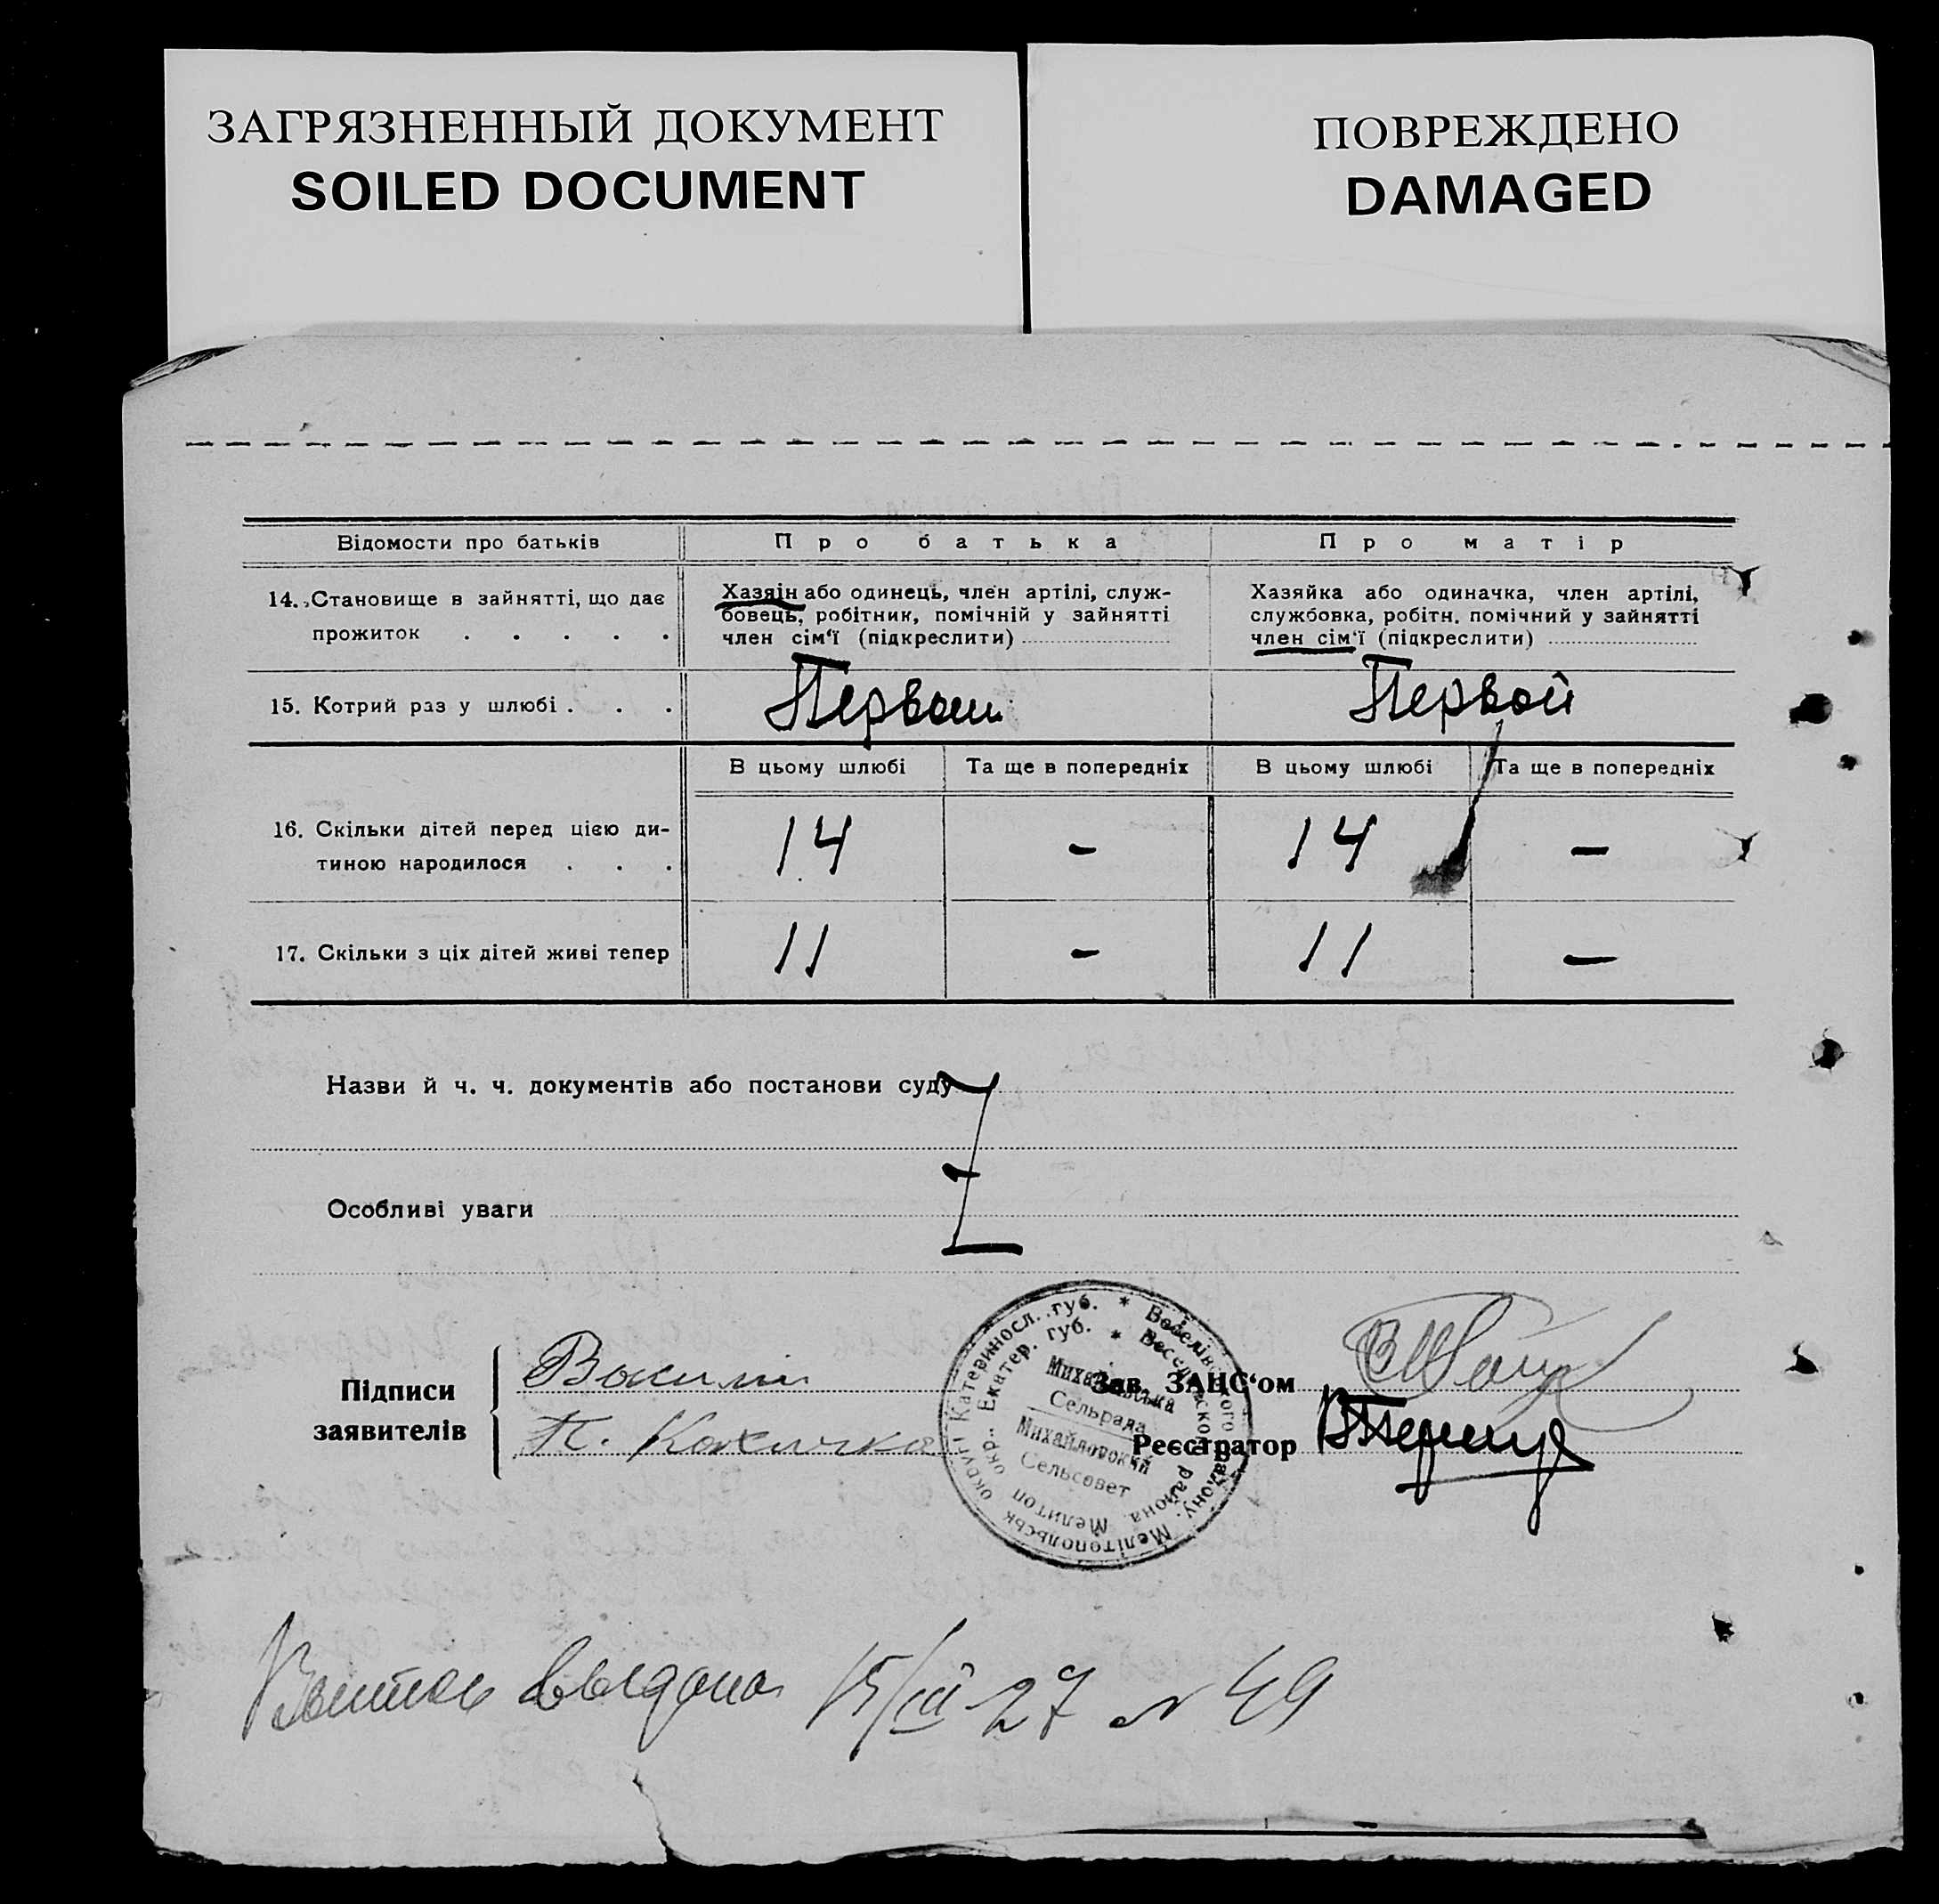 ЗАГРЯЗНЕННЫЙ ДОКУМЕНТ
SOILED DOCUMENT
ПОВРЕЖДЕНО
DAMAGED
Відомости про батьків
Про батька
Про матір
14. Становище в зайнятті, що дає
прожиток . . . . .
Хазяїн або одинець, член артілі, служ-
бовець, робітник, помічній у зайнятті
член сім'ї (підкреслити)
Хазяйка або одиначка, член артілі,
службовка, робітн. помічний у зайнятті
член сім'ї (підкреслити)
15. Котрий раз у шлюбі . . .
Первый
Первой
В цьому шлюбі
Та ще в попередніх
В цьому шлюбі
Та ще в попередніх
16. Скільки дітей перед цією ди-
тиною народилося . . .
14
-
14
-
17. Скільки з ціх дітей живі тепер
11
-
11
-
Назви й ч. ч. документів або постанови суду
Особливі уваги
Підписи
заявителів
Зав. ЗАЦС'ом
Реєстратор
Катериносл. губ. * Веселівського району. Мелітопольськ округи
Екатер. губ. * Веселовского района. Мелитоп окр.
Михайлівська
Сельрада
Михайловский
Сельсовет
выдана 15/III-27 № 49